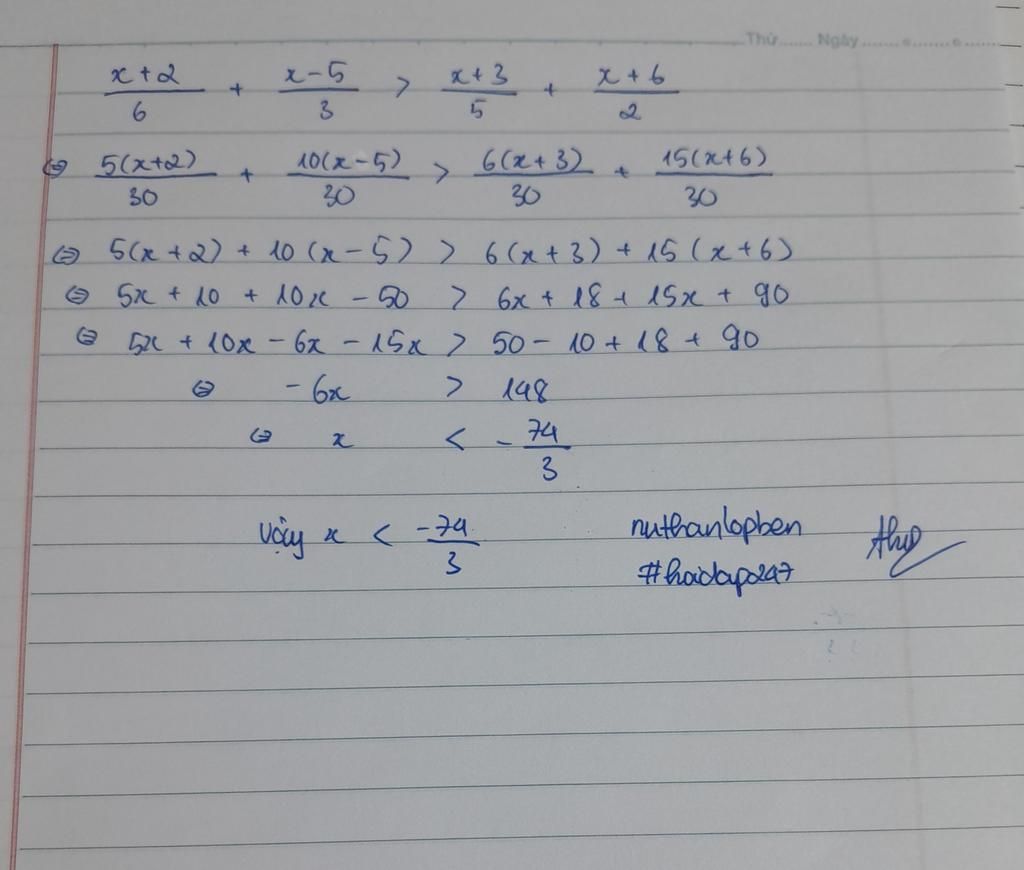 Thứ...... Ngày ...............
x+2/6 + x-5/3 > x+3/5 + x+6/2
⇔ 5(x+2)/30 + 10(x-5)/30 > 6(x+3)/30 + 15(x+6)/30
⇔ 5(x+2) + 10(x-5) > 6(x+3) + 15(x+6)
⇔ 5x + 10 + 10x - 50 > 6x + 18 + 15x + 90
⇔ 5x + 10x - 6x - 15x > 50 - 10 + 18 + 90
⇔ -6x > 148
⇔ x < -74/3
Vậy x < -74/3
nuthanlopben
#hoidap247